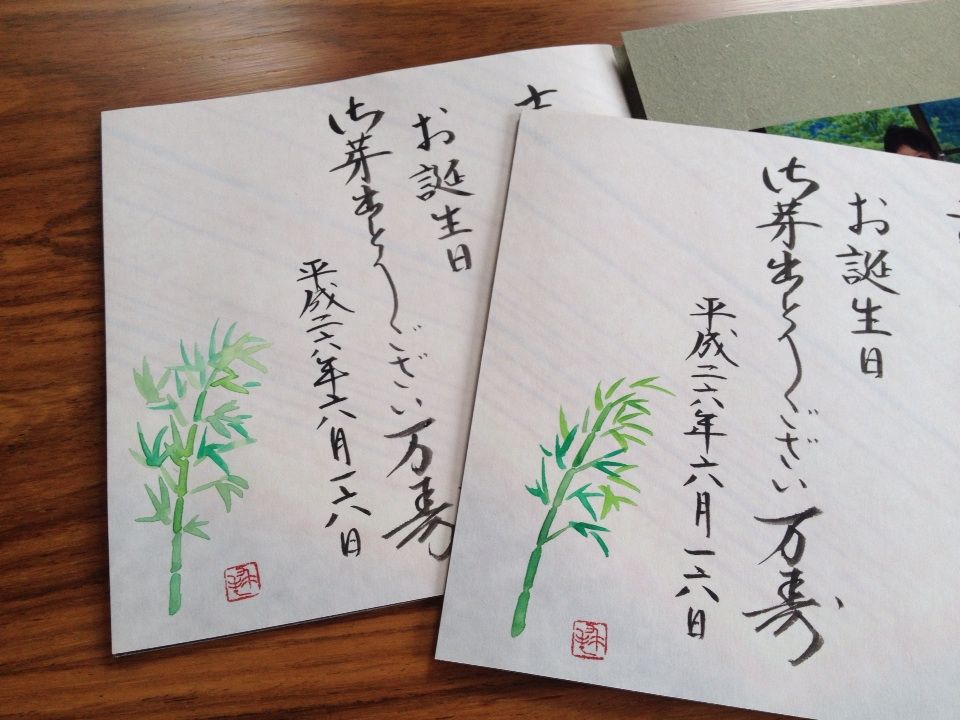 お誕生日
御芽出とうござい万寿
平成二六年六月一六日
お誕生日
御芽出とうござい万寿
平成二六年六月一六日